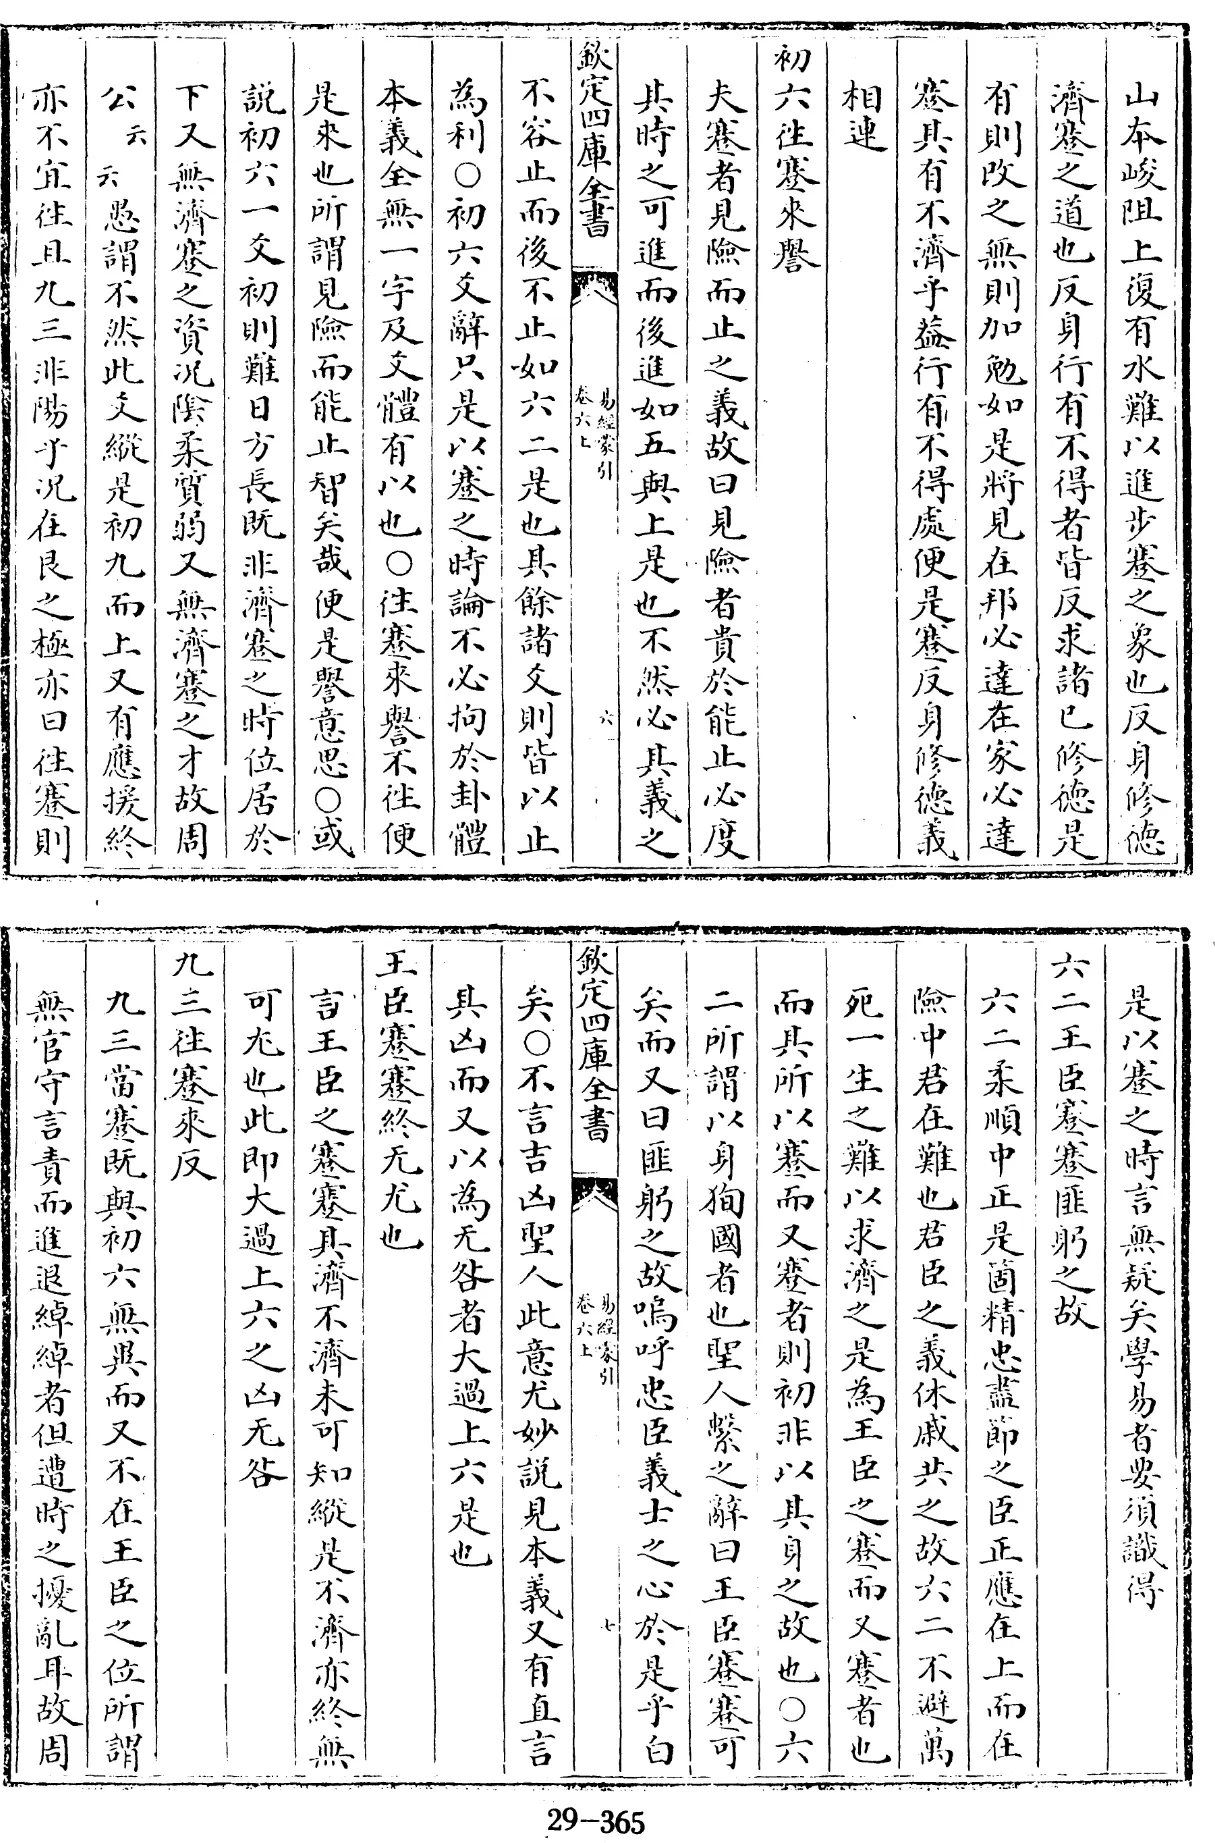 山本峻阻上復有水難以進步蹇之象也反身修德
濟蹇之道也反身行有不得者皆反求諸已修德是
有則改之無則加勉如是將見在邦必達在家必達
蹇其有不濟乎益行有不得處便是蹇反身修德義
相連
初六往蹇來譽
夫蹇者見險而止之義故曰見險者貴於能止必度
其時之可進而後進如五與上是也不然必其義之
欽定四庫全書
易經蒙引
卷六上
六
不容止而後不止如六二是也其餘諸爻則皆以止
為利○初六爻辭只是以蹇之時論不必拘於卦體
本義全無一字及爻體有以也○往蹇來譽不往便
是來也所謂見險而能止智矣哉便是譽意思○或
説初六一爻初則難日方長既非濟蹇之時位居於
下又無濟蹇之資况陰柔質弱又無濟蹇之才故周
公云云愚謂不然此爻縱是初九而上又有應援終
亦不宜往且九三非陽乎况在艮之極亦曰往蹇則
是以蹇之時言無疑矣學易者要須識得
六二王臣蹇蹇匪躬之故
六二柔順中正是箇精忠盡節之臣正應在上而在
險中君在難也君臣之義休戚共之故六二不避萬
死一生之難以求濟之是為王臣之蹇而又蹇者也
而其所以蹇而又蹇者則初非以其身之故也○六
二所謂以身狥國者也聖人繫之辭曰王臣蹇蹇可
矣而又曰匪躬之故嗚呼忠臣義士之心於是乎白
欽定四庫全書
易經蒙引
卷六上
七
矣○不言吉凶聖人此意尤妙説見本義又有直言
其凶而又以為无咎者大過上六是也
王臣蹇蹇終无尤也
言王臣之蹇蹇其濟不濟未可知縱是不濟亦終無
可尤也此即大過上六之凶无咎
九三往蹇來反
九三當蹇既與初六無異而又不在王臣之位所謂
無官守言責而進退綽綽者但遭時之擾亂耳故周
29-365